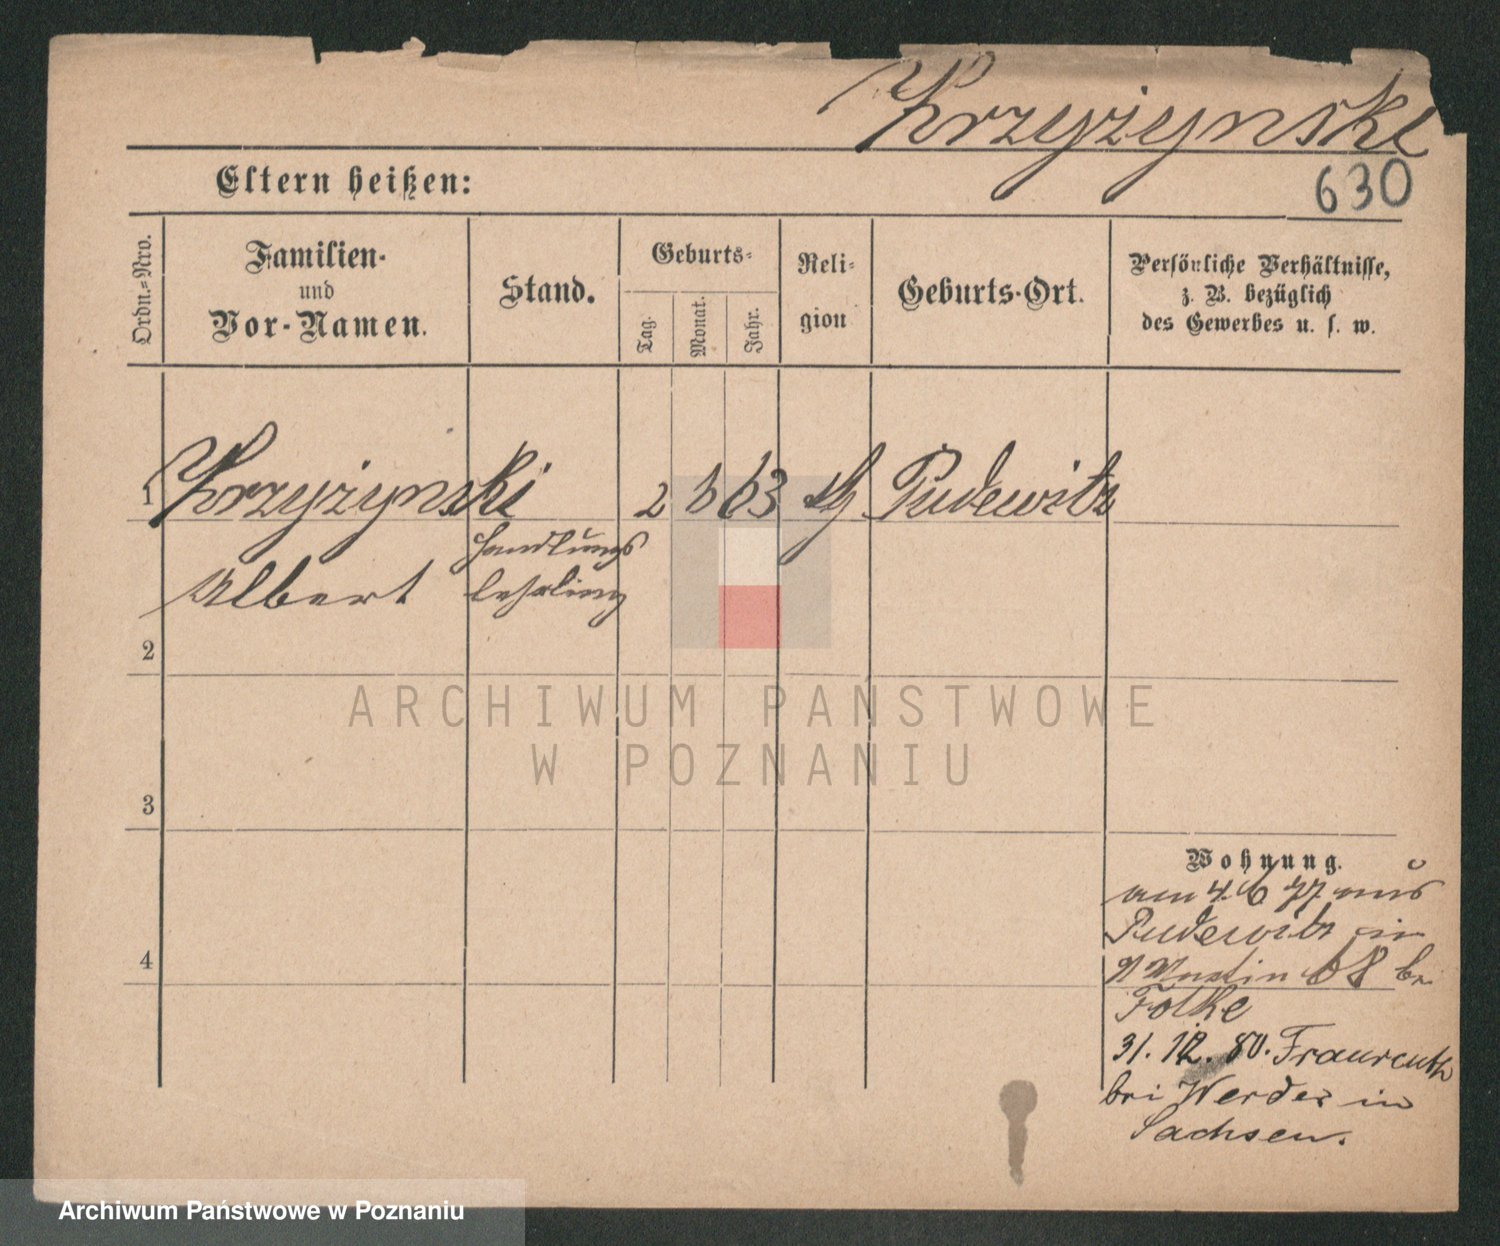 Krzyżynski
630
Eltern heißen:
Ordn.-Nro.
Familien-
und
Vor-Namen.
Stand.
Geburts-
Tag.
Monat.
Jahr.
Reli-
gion
Geburts-Ort.
Persönliche Verhältnisse,
z. B. bezüglich
des Gewerbes u. s. w.
1 Krzyżynski 2 63 Pudewitz
Albert
Handlungs
lehrling
2
3
4
Wohnung.
am 4. 6 77 aus
Pudewitz in
St Martin 68 bei
31. 12. 80. Fraureuth
bei Werdes in
Sachsen.
ARCHIWUM PAŃSTWOWE
W POZNANIU
Archiwum Państwowe w Poznaniu